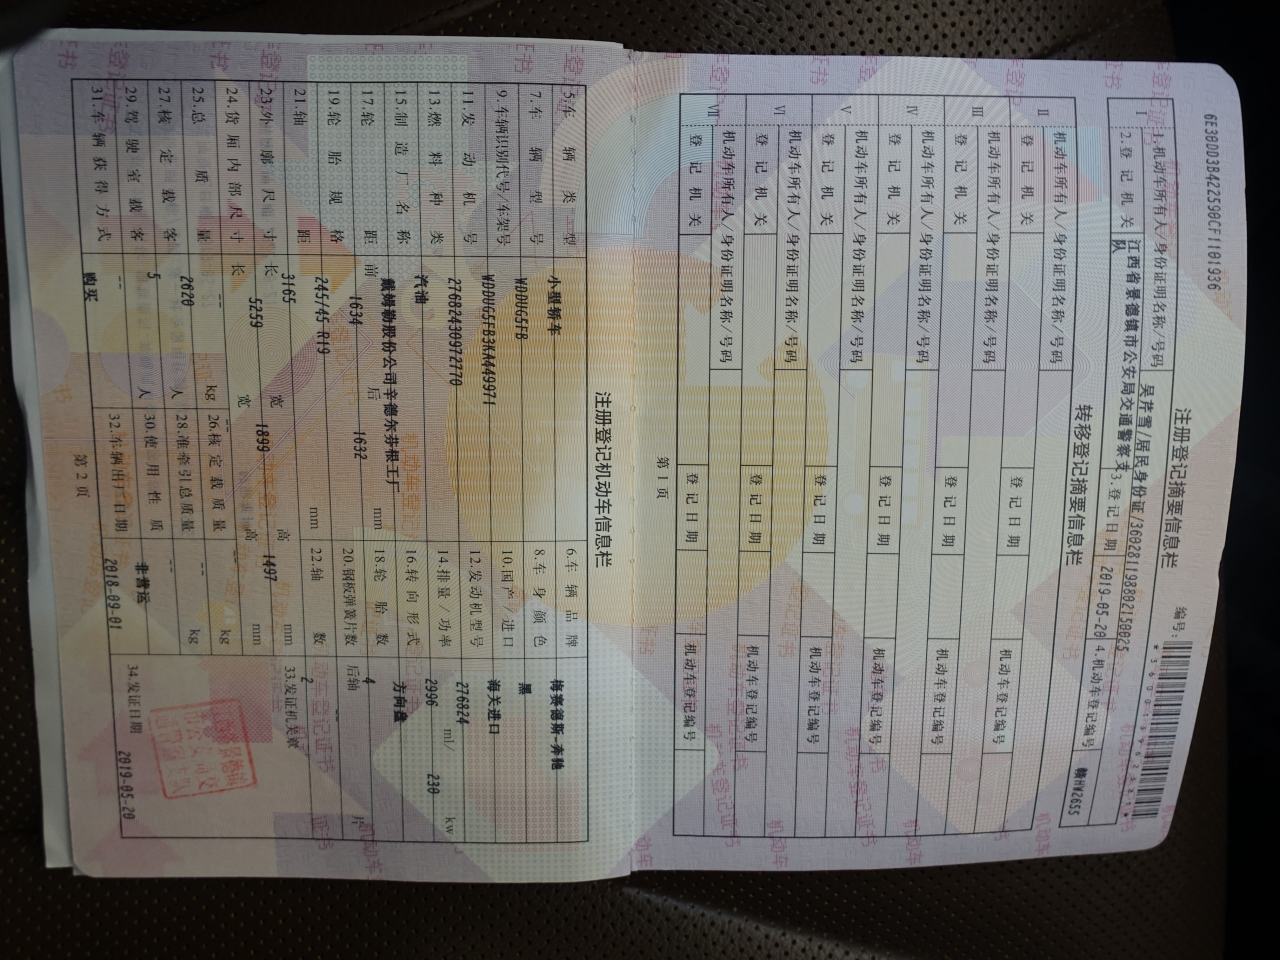 6E38DD3B422590CF1101936
注册登记摘要信息栏
编号：
I
1.机动车所有人/身份证明名称/号码 吴芹雪/居民身份证/360281198802150025
2.登记机关 江西省景德镇市公安局交通警察支队 3.登记日期 2019-05-20 4.机动车登记编号 赣HW2655
转移登记摘要信息栏
II 机动车所有人/身份证明名称/号码
登记机关 登记日期 机动车登记编号
III 机动车所有人/身份证明名称/号码
登记机关 登记日期 机动车登记编号
IV 机动车所有人/身份证明名称/号码
登记机关 登记日期 机动车登记编号
V 机动车所有人/身份证明名称/号码
登记机关 登记日期 机动车登记编号
VI 机动车所有人/身份证明名称/号码
登记机关 登记日期 机动车登记编号
VII 机动车所有人/身份证明名称/号码
登记机关 登记日期 机动车登记编号
第1页
注册登记机动车信息栏
5.车辆类型 小型轿车 6.车辆品牌 梅赛德斯-奔驰
7.车辆型号 WDDUG5FB 8.车身颜色 黑
9.车辆识别代号/车架号 WDDUG5FB3KA449971 10.国产/进口 海关进口
11.发动机号 27682430972770 12.发动机型号 276824
13.燃料种类 汽油 14.排量/功率 2996 ml/ 230 kw
15.制造厂名称 戴姆勒股份公司辛德尔芬根工厂 16.转向形式 方向盘
17.轮距 前 1634 后 1632 mm 18.轮胎数 4
19.轮胎规格 245/45 R19 20.钢板弹簧片数 后轴 -- 片
21.轴距 3165 mm 22.轴数 2
23.外廓尺寸 长 5259 宽 1899 高 1497 mm 33.发证机关章
24.货厢内部尺寸 长 -- 宽 -- 高 -- mm
25.总质量 2620 kg 26.核定载质量 -- kg
27.核定载客 5 人 28.准牵引总质量 -- kg
29.驾驶室载客 -- 人 30.使用性质 非营运
31.车辆获得方式 购买 32.车辆出厂日期 2018-09-01 34.发证日期 2019-05-20
第2页